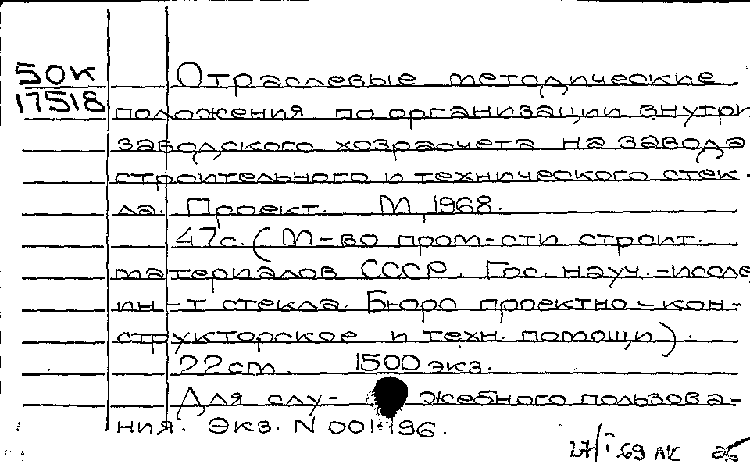 50К
17518
Отраслевые методические
положения по организации внутри
заводского хозрасчета на завода
строительного и технического стек-
ла. Проект. М, 1968.
47с. (М-во пром-сти строит.
материалов СССР. Гос. науч.-иссле
ин-т стекла. Бюро проектно-кон-
структорское и техн. помощи).
22cm. 1500 экз.
Для слу- жебного пользова-
ния. Экз. N
27/I.69